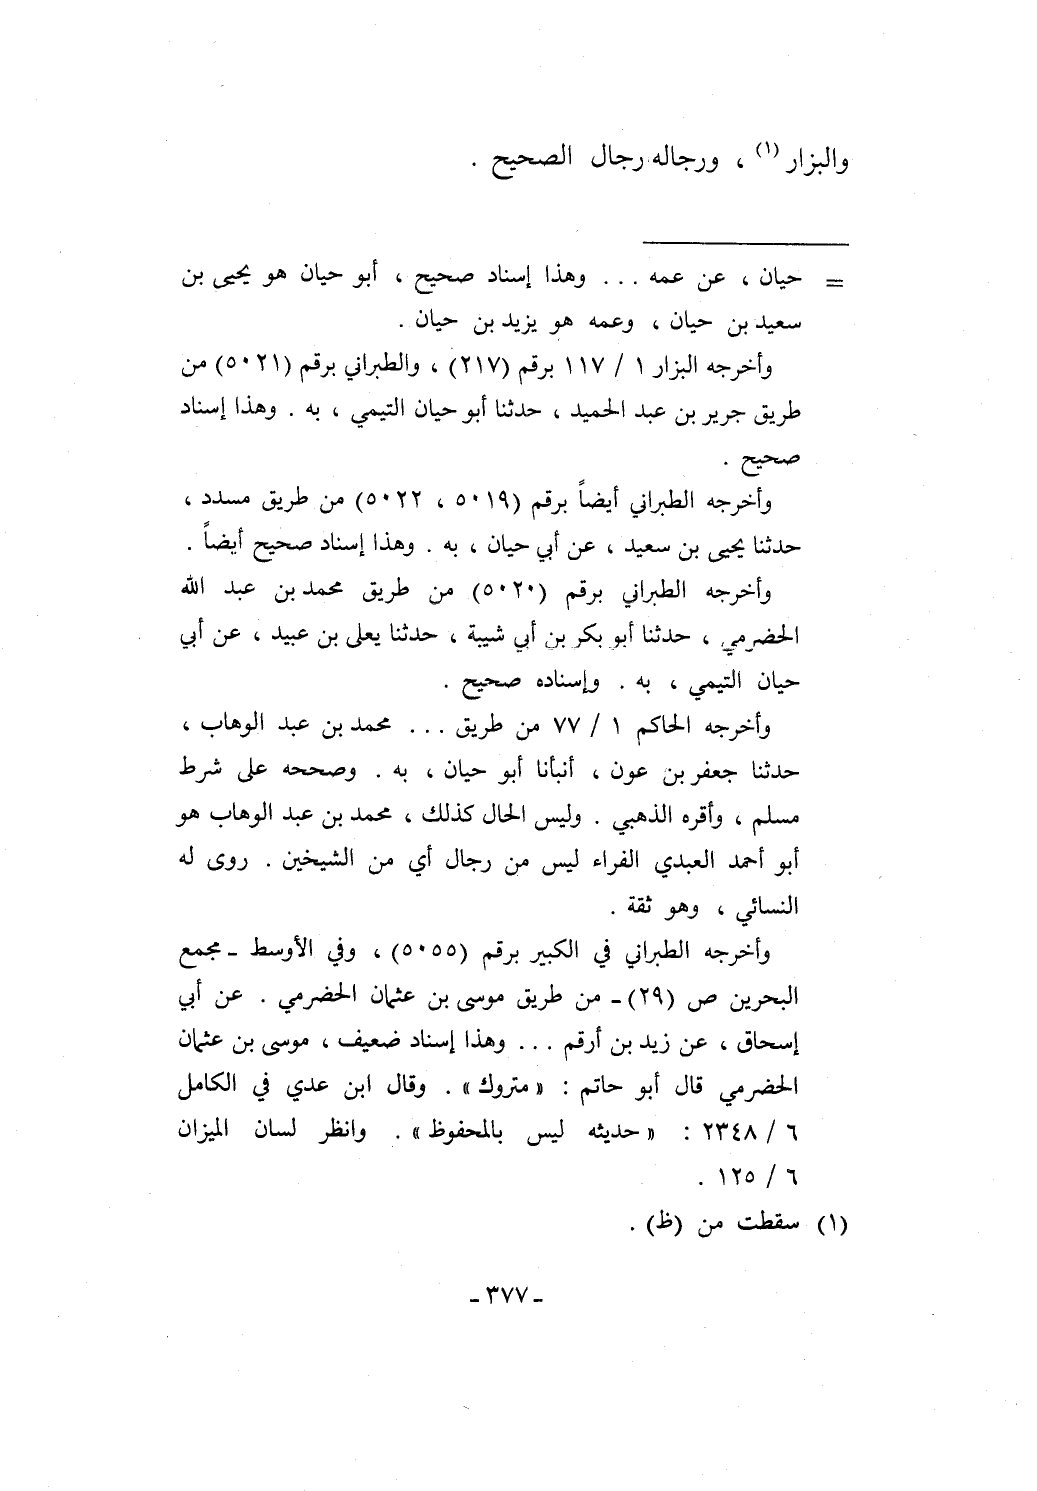 والبزار (١) ، ورجاله رجال الصحيح .
= حيان ، عن عمه ... وهذا إسناد صحيح ، أبو حيان هو يحيى بن
سعيد بن حيان ، وعمه هو يزيد بن حيان .
وأخرجه البزار ١ / ١١٧ برقم (٢١٧) ، والطبراني برقم (٥٠٢١) من
طريق جرير بن عبد الحميد ، حدثنا أبو حيان التيمي ، به . وهذا إسناد
صحيح .
وأخرجه الطبراني أيضاً برقم (٥٠١٩ ، ٥٠٢٢) من طريق مسدد ،
حدثنا يحيى بن سعيد ، عن أبي حيان ، به . وهذا إسناد صحيح أيضاً .
وأخرجه الطبراني برقم (٥٠٢٠) من طريق محمد بن عبد الله
الحضرمي ، حدثنا أبو بكر بن أبي شيبة ، حدثنا يعلى بن عبيد ، عن أبي
حيان التيمي ، به . وإسناده صحيح .
وأخرجه الحاكم ١ / ٧٧ من طريق ... محمد بن عبد الوهاب ،
حدثنا جعفر بن عون ، أنبأنا أبو حيان ، به . وصححه على شرط
مسلم ، وأقره الذهبي . وليس الحال كذلك ، محمد بن عبد الوهاب هو
أبو أحمد العبدي الفراء ليس من رجال أي من الشيخين . روى له
النسائي ، وهو ثقة .
وأخرجه الطبراني في الكبير برقم (٥٠٥٥) ، وفي الأوسط ـ مجمع
البحرين ص (٢٩) ـ من طريق موسى بن عثمان الحضرمي . عن أبي
إسحاق ، عن زيد بن أرقم ... وهذا إسناد ضعيف ، موسى بن عثمان
الحضرمي قال أبو حاتم : « متروك » . وقال ابن عدي في الكامل
٦ / ٢٣٤٨ : « حديثه ليس بالمحفوظ » . وانظر لسان الميزان
٦ / ١٢٥ .
(١) سقطت من (ظ) .
ـ ٣٧٧ ـ